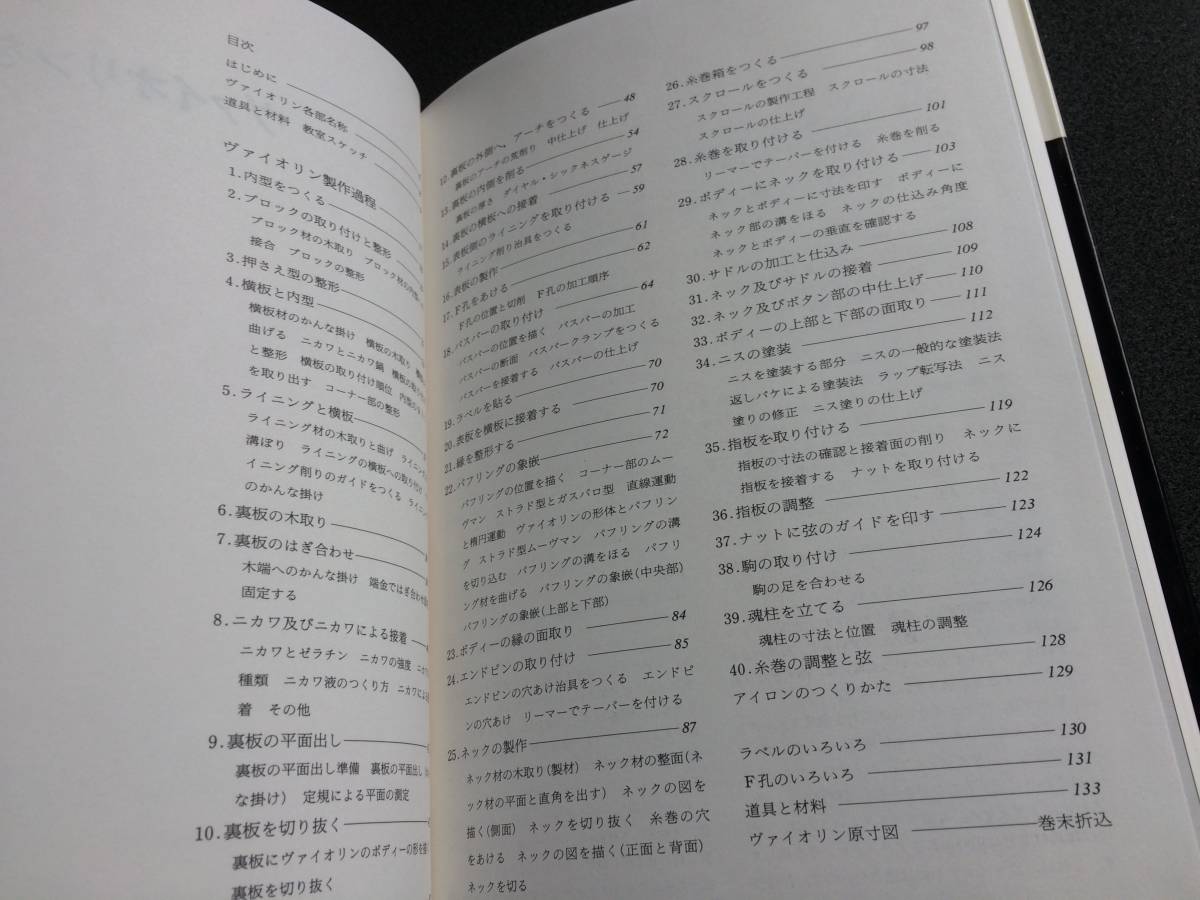 目次
はじめに
ヴァイオリン各部名称
道具と材料　教室スケッチ
ヴァイオリン製作過程
1.内型をつくる
2.ブロックの取り付けと整形
ブロック材の木取り　ブロック材の
接合　ブロックの整形
3.押さえ型の整形
4.横板と内型
横板材のかんな掛け　横板の木取り
曲げる　ニカワとニカワ鍋
と整形　横板の取り付け順位
を取り出す　コーナー部の整形
5.ライニングと横板
ライニング材の木取りと曲げ
溝ぼり　ライニングの横板への取り付け
イニング削りのガイドをつくる
のかんな掛け
6.裏板の木取り
7.裏板のはぎ合わせ
木端へのかんな掛け　端金ではぎ合わせ
固定する
8.ニカワ及びニカワによる接着
ニカワとゼラチン　ニカワの強度
種類　ニカワ液のつくり方　ニカワによる
着　その他
9.裏板の平面出し
裏板の平面出し準備　裏板の平面出し
な掛け)　定規による平面の測定
10.裏板を切り抜く
裏板にヴァイオリンのボディーの形を
裏板を切り抜く
12.裏板の外側へ、アーチをつくる 48
裏板のアーチの荒削り　中仕上げ　仕上げ
13.裏板の内側を削る 54
裏板の厚さ　ダイヤル・シックネスゲージ
14.裏板の横板への接着 57
15.表板側のライニングを取り付ける 59
ライニング削り治具をつくる
16.表板の製作 61
17.F孔をあける 62
F孔の位置と切削　F孔の加工順序
18.バスバーの取り付け 64
バスバーの位置を描く　バスバーの加工
バスバーの断面　バスバークランプをつくる
バスバーを接着する　バスバーの仕上げ
19.ラベルを貼る 70
20.表板を横板に接着する 70
21.縁を整形する 71
22.パフリングの象嵌 72
パフリングの位置を描く　コーナー部のムー
ヴマン　ストラド型とガスパロ型　直線運動
と楕円運動　ヴァイオリンの形体とパフリン
グ　ストラド型ムーヴマン　パフリングの溝
を切り込む　パフリングの溝をほる　パフリ
ング材を曲げる　パフリングの象嵌(中央部)
パフリングの象嵌(上部と下部)
23.ボディーの縁の面取り 84
24.エンドピンの取り付け 85
エンドピンの穴あけ治具をつくる　エンドピ
ンの穴あけ　リーマーでテーパーを付ける
25.ネックの製作 87
ネック材の木取り(製材)　ネック材の整面(ネ
ック材の平面と直角を出す)　ネックの図を
描く(側面)　ネックを切り抜く　糸巻の穴
をあける　ネックの図を描く(正面と背面)
ネックを切る
26.糸巻箱をつくる 97
27.スクロールをつくる 98
スクロールの製作工程　スクロールの寸法
スクロールの仕上げ
28.糸巻を取り付ける 101
リーマーでテーパーを付ける　糸巻を削る
29.ボディーにネックを取り付ける 103
ネックとボディーに寸法を印す　ボディーに
ネック部の溝をほる　ネックの仕込み角度
ネックとボディーの垂直を確認する
30.サドルの加工と仕込み 108
31.ネック及びサドルの接着 109
32.ネック及びボタン部の中仕上げ 110
33.ボディーの上部と下部の面取り 111
34.ニスの塗装 112
ニスを塗装する部分　ニスの一般的な塗装法
返しバケによる塗装法　ラップ転写法　ニス
塗りの修正　ニス塗りの仕上げ
35.指板を取り付ける 119
指板の寸法の確認と接着面の削り　ネックに
指板を接着する　ナットを取り付ける
36.指板の調整 122
37.ナットに弦のガイドを印す 123
38.駒の取り付け 124
駒の足を合わせる
39.魂柱を立てる 126
魂柱の寸法と位置　魂柱の調整
40.糸巻の調整と弦 128
アイロンのつくりかた 129
ラベルのいろいろ 130
F孔のいろいろ 131
道具と材料 133
ヴァイオリン原寸図 巻末折込